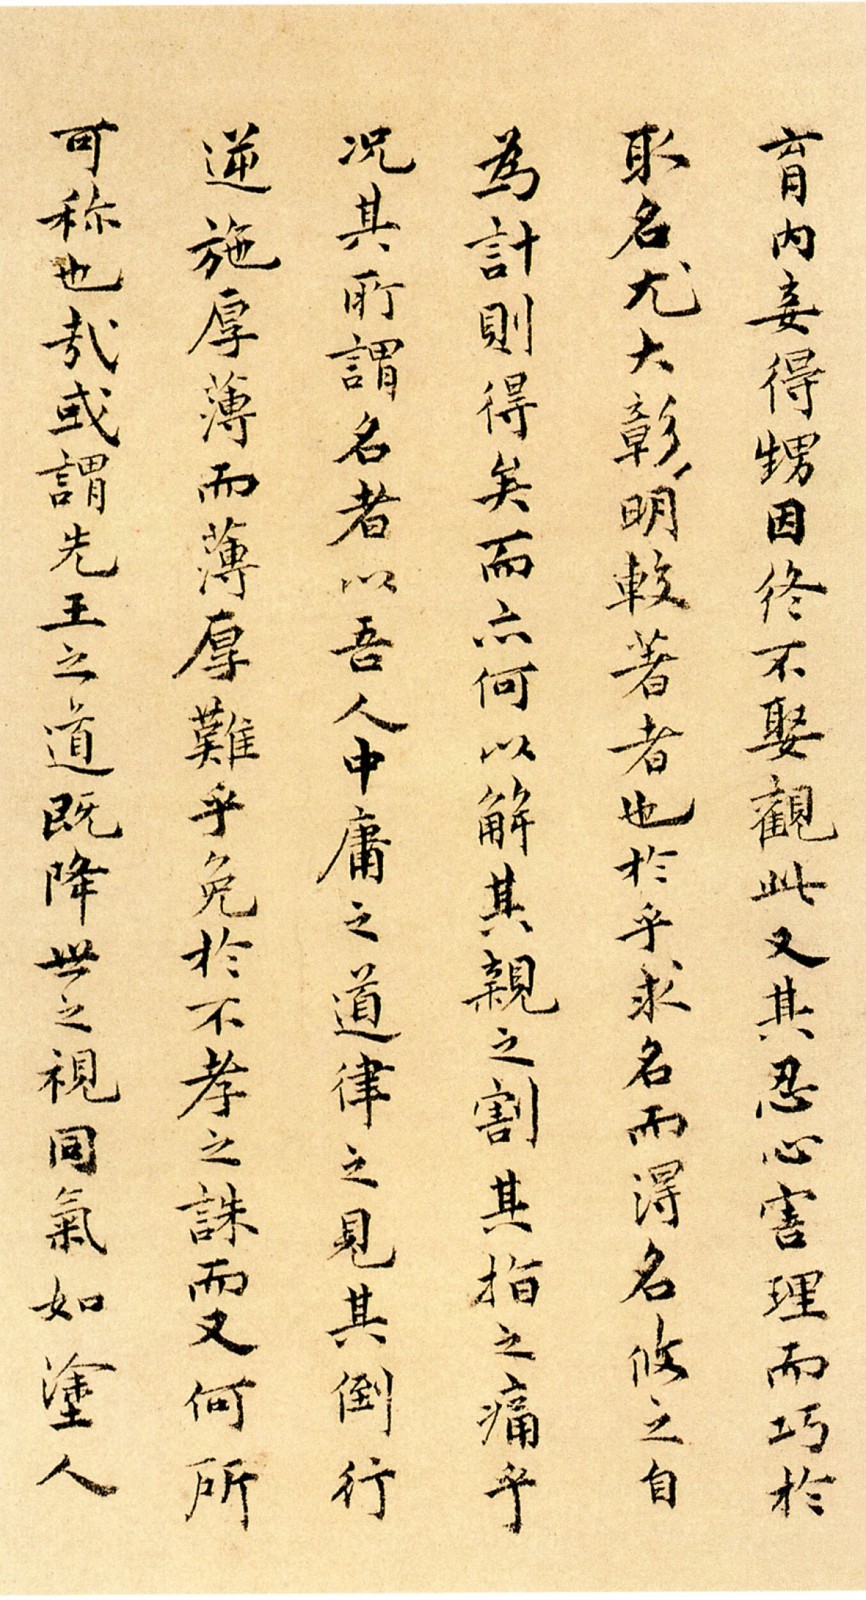 育内妾得甥因終不娶觀此又其忍心害理而巧於
取名尤大彰明較著者也於乎求名而得名攸之自
為計則得矣而亦何以解其親之割其指之痛乎
况其所謂名者以吾人中庸之道律之見其倒行
逆施厚薄而薄厚難乎免於不孝之誅而又何所
可称也哉或謂先王之道既降世之視同氣如塗人